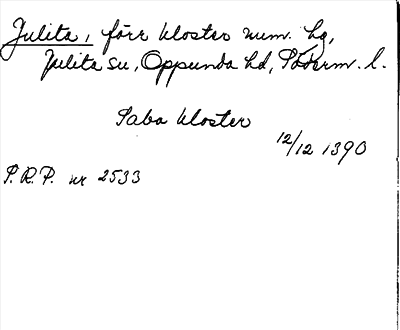 Julita, förr kloster num. hg,
Julita sn, Oppunda hd, Söderm. l.
Saba kloster
12/12 1390
S.R.P. nr 2533